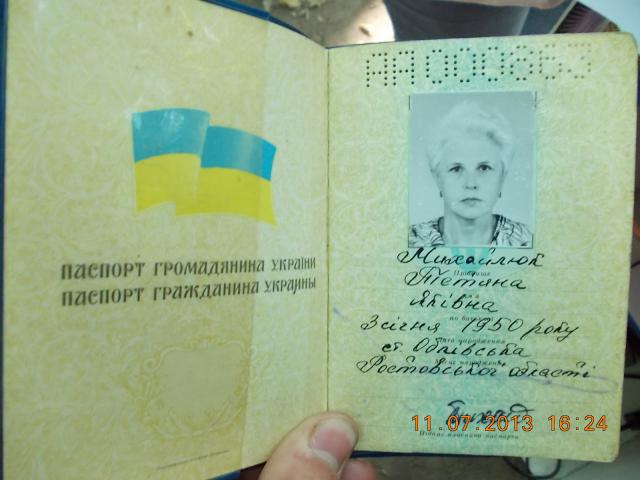 ПАСПОРТ ГРОМАДЯНИНА УКРАЇНИ
ПАСПОРТ ГРАЖДАНИНА УКРАИНЫ
Михайлюк
Прізвище
Тетяна
Яківна
по батькові
3 січня 1950 року
Дата народження
ст. Облівська
Ростовської області
Підпис власника паспорта
11.07.2013 16:24